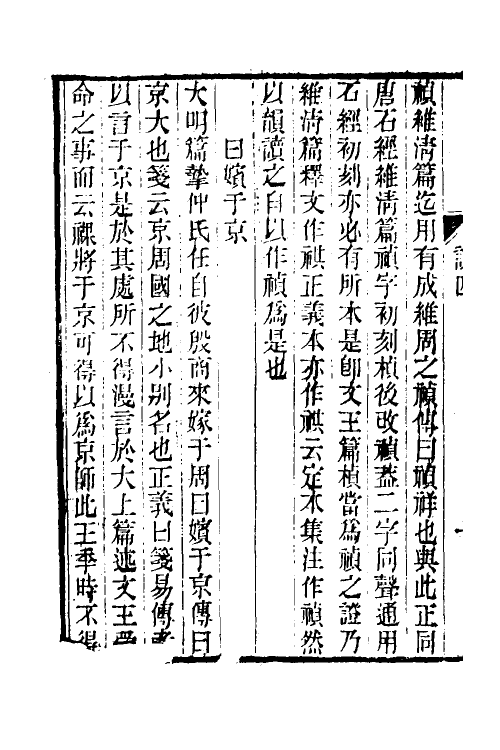 禎維清篇迄用有成維周之禎傳曰禎祥也與此正同
唐石經維清篇禎字初刻楨後改禎葢二字同聲通用
石經初刻亦必有所本是卽文王篇楨當爲禎之證乃
維清篇釋文作祺正義本亦作祺云定本集注作禎然
以韻讀之自以作禎爲是也
曰嬪于京
大明篇摯仲氏任自彼殷商來嫁于周曰嬪于京傳曰
京大也箋云京周國之地小別名也正義曰箋易傳者
以言于京是於其處所不得漫言於大上篇述文王受
命之事而云祼將于京可得以爲京師此王季時不得